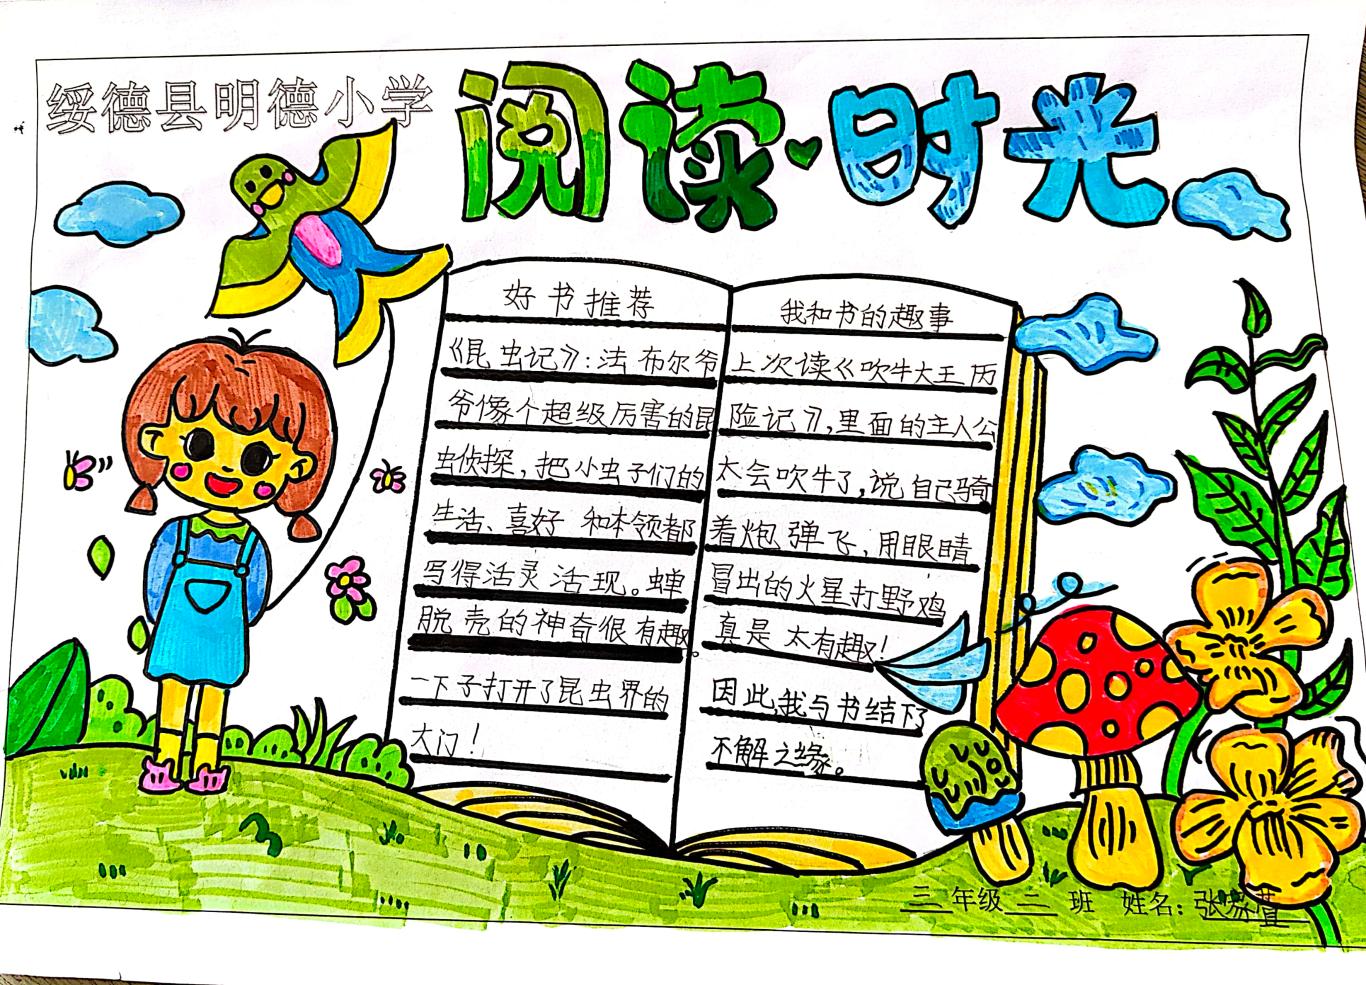 绥德县明德小学
阅读时光
好书推荐
《昆虫记》:法布尔爷
爷像个超级厉害的昆
虫侦探,把小虫子们的
生活、喜好和本领都
写得活灵活现。蝉
脱壳的神奇很有趣。
一下子打开了昆虫界的
大门!
我和书的趣事
上次读《吹牛大王历
险记》,里面的主人公
太会吹牛了,说自己骑
着炮弹飞,用眼睛
冒出的火星打野鸡
真是太有趣!
因此,我与书结下了
不解之缘。
三年级二班 姓名:张